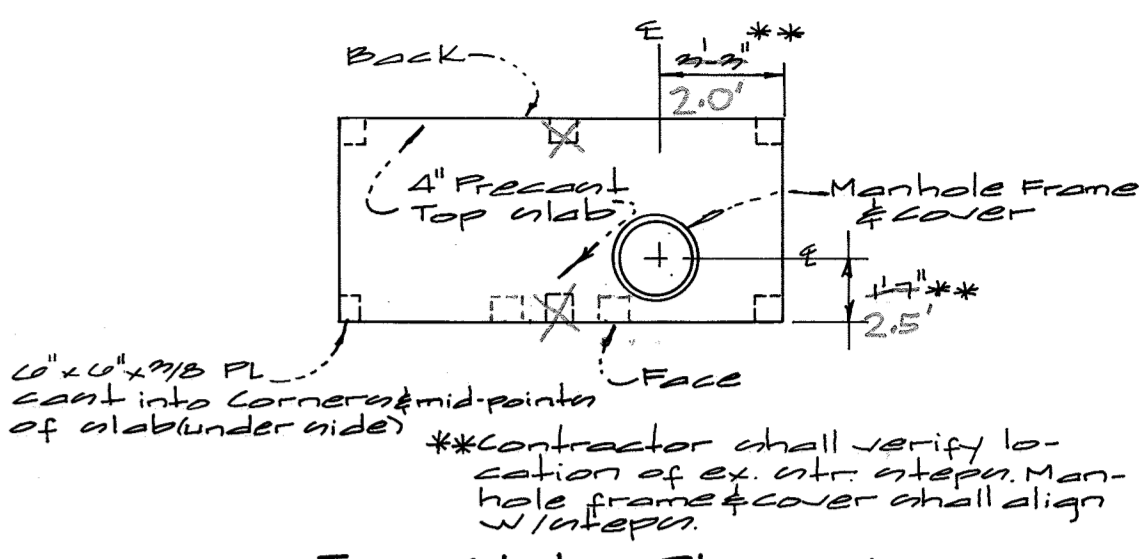 ℄
3'-3" **
2.0'
Back
4" Precast
Top slab
Manhole Frame
& cover
℄
1'-7" **
2.5'
6" x 6" x 3/8 PL
cast into corners & mid-points
of slab (under side)
Face
** Contractor shall verify lo-
cation of ex. str. steps. Man-
hole frame & cover shall align
w/steps.